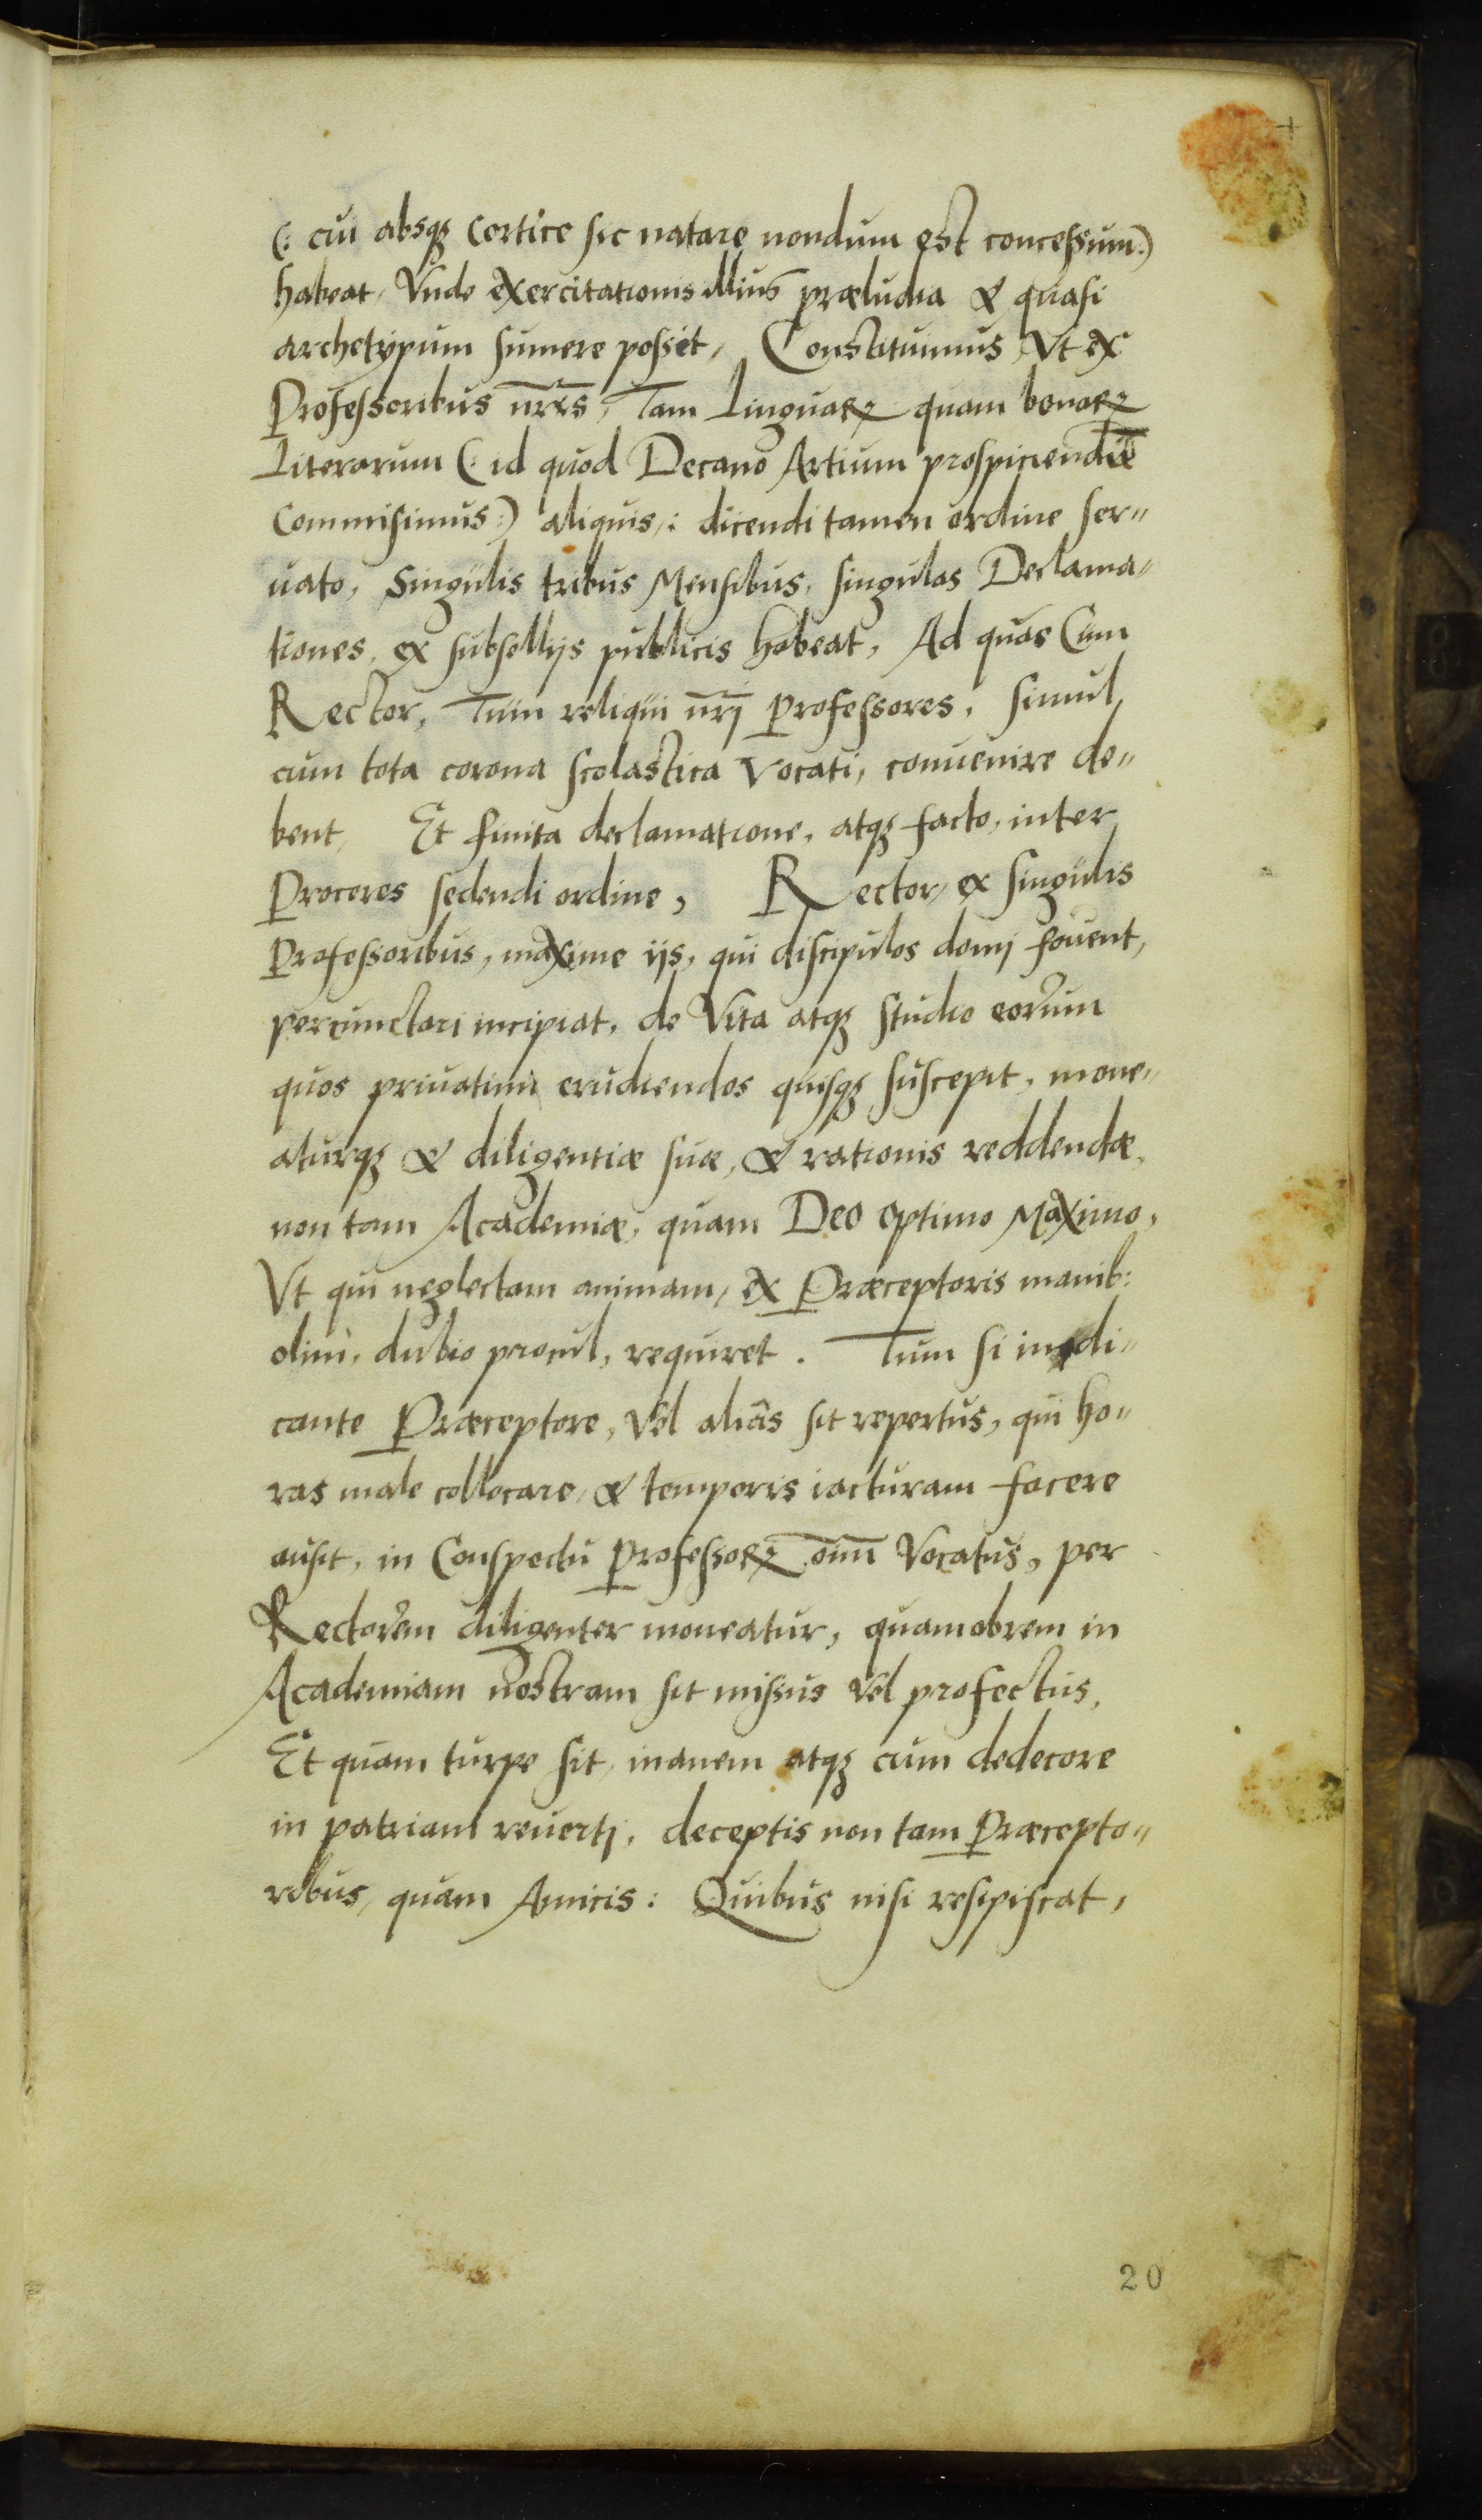 (: cui absqꝫ Cortice sic natare nondum est concessum:)
habeat, Vnde exercitationis illius præludia & quasi
archetypum sumere possit, Constituimus, Vt ex
Professoribus nr̄is, Tam Linguaꝝ quam bonaꝝ
Literarum (: id quod Decano Artium prospiciendū
Commisimus:) aliquis,: dicendi tamen ordine ser„
uato, Singulis tribus Mensibus, singulas Declama„
tiones, ex subsellijs publicis habeat, Ad quas Cùm
Rector, Tùm reliqui nr̄j Professores, simul
cum tota corona scolastica Vocati, conuenire de„
bent, Et finita declamatione, atqꝫ facto, inter
Proceres sedendi ordine, Rector, ex singulis
Professoribus, maxime ijs, qui discipulos domj fouent,
percunctari incipiat, de Vita atqꝫ studio eorum
quos priuatim erudiendos quisqꝫ suscepit, mone„
aturqꝫ & diligentiæ suæ, & rationis reddendæ,
non tam Academiæ, quam Deo optimo Maximo,
Vt qui neglectam animam, ex Præceptoris manib:
olim, dubio procul, requiret. Tum si indi„
cante Præceptore, Vel aliàs sit repertus, qui ho„
ras male collocare, & temporis iacturam facere
ausit, in Conspectu Professoꝝ om̄m Vocatus, per
Rectorem diligenter moneatur, quamobrem in
Academiam nostram sit missus Vel profectus,
Et quam turpe sit, inanem atqꝫ cum dedecore
in patriam reuertj, deceptis non tam Præcepto„
ribus, quam Amicis: Quibus nisi resipiscat,
20